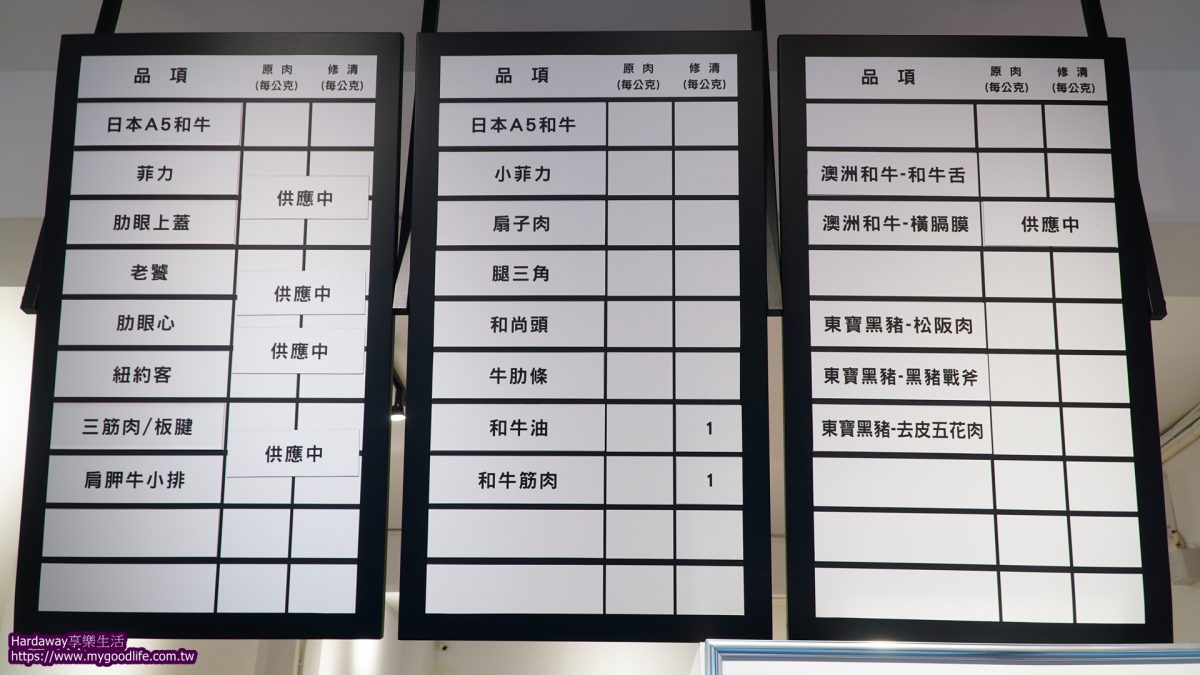 品項 原肉 修清
(每公克) (每公克)
日本A5和牛
菲力
供應中
肋眼上蓋
老饕
供應中
肋眼心
供應中
紐約客
三筋肉/板腱
供應中
肩胛牛小排
品項 原肉 修清
(每公克) (每公克)
日本A5和牛
小菲力
扇子肉
腿三角
和尚頭
牛肋條
和牛油 1
和牛筋肉 1
品項 原肉 修清
(每公克) (每公克)
澳洲和牛-和牛舌
澳洲和牛-橫膈膜 供應中
東寶黑豬-松阪肉
東寶黑豬-黑豬戰斧
東寶黑豬-去皮五花肉
Hardaway享樂生活
https://www.mygoodlife.com.tw